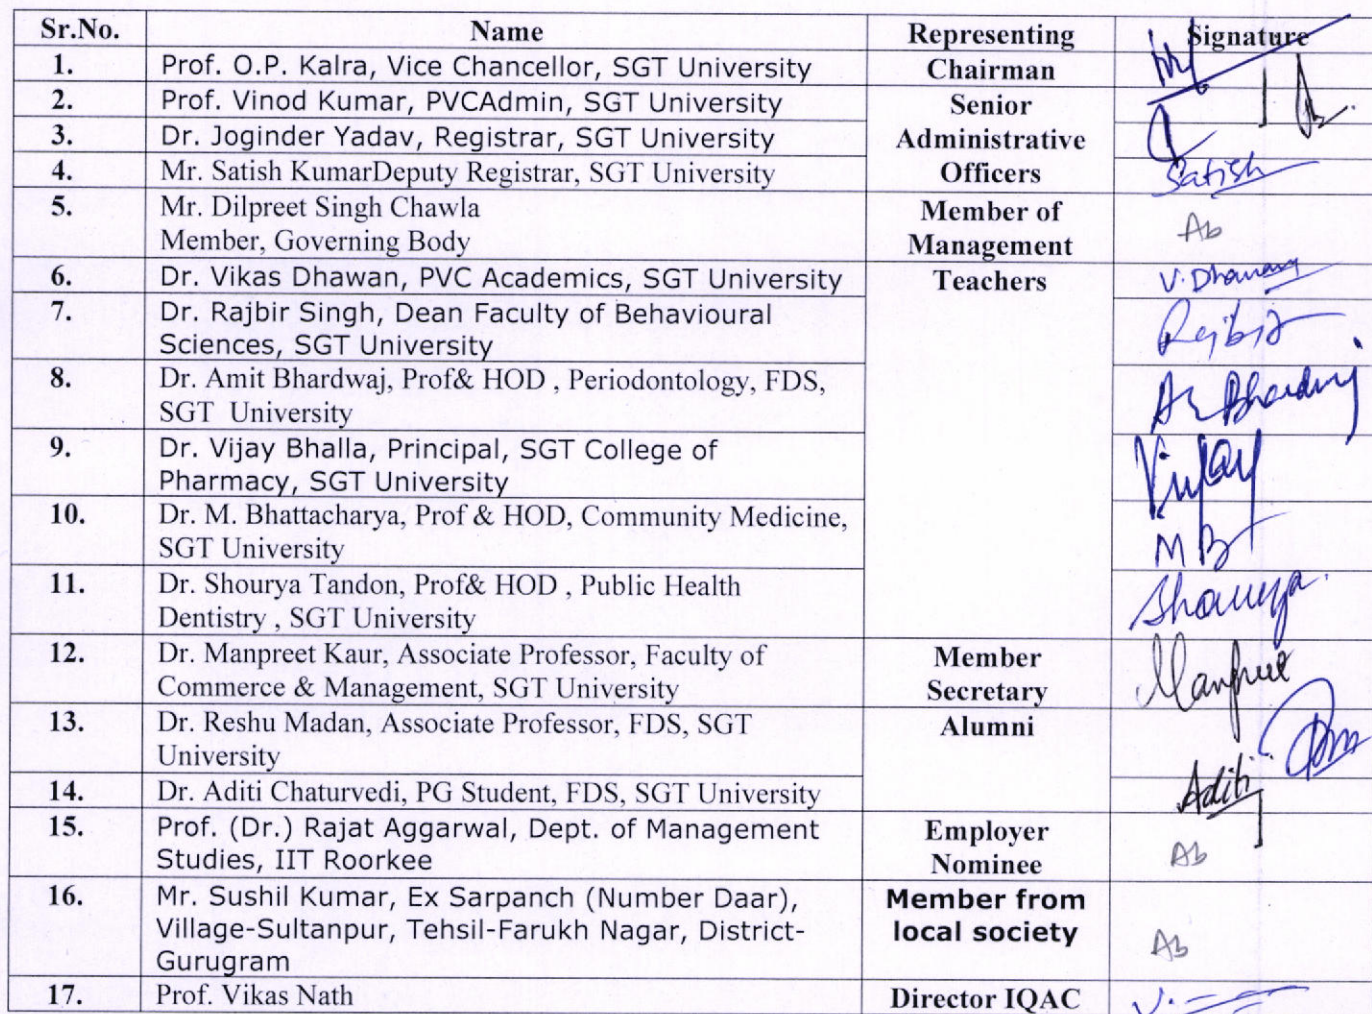 Sr.No. Name Representing Signature
1. Prof. O.P. Kalra, Vice Chancellor, SGT University Chairman
2. Prof. Vinod Kumar, PVCAdmin, SGT University Senior
3. Dr. Joginder Yadav, Registrar, SGT University Administrative
4. Mr. Satish KumarDeputy Registrar, SGT University Officers Satish
5. Mr. Dilpreet Singh Chawla Member of
Member, Governing Body Management Ab
6. Dr. Vikas Dhawan, PVC Academics, SGT University Teachers V. Dhawan
7. Dr. Rajbir Singh, Dean Faculty of Behavioural
Sciences, SGT University Rajbir
8. Dr. Amit Bhardwaj, Prof& HOD , Periodontology, FDS,
SGT University Bhardwaj
9. Dr. Vijay Bhalla, Principal, SGT College of
Pharmacy, SGT University Vijay
10. Dr. M. Bhattacharya, Prof & HOD, Community Medicine,
SGT University MB
11. Dr. Shourya Tandon, Prof& HOD , Public Health
Dentistry , SGT University Shourya
12. Dr. Manpreet Kaur, Associate Professor, Faculty of Member
Commerce & Management, SGT University Secretary Manpreet
13. Dr. Reshu Madan, Associate Professor, FDS, SGT Alumni
University
14. Dr. Aditi Chaturvedi, PG Student, FDS, SGT University Aditi
15. Prof. (Dr.) Rajat Aggarwal, Dept. of Management Employer
Studies, IIT Roorkee Nominee Ab
16. Mr. Sushil Kumar, Ex Sarpanch (Number Daar), Member from
Village-Sultanpur, Tehsil-Farukh Nagar, District- local society
Gurugram Ab
17. Prof. Vikas Nath Director IQAC